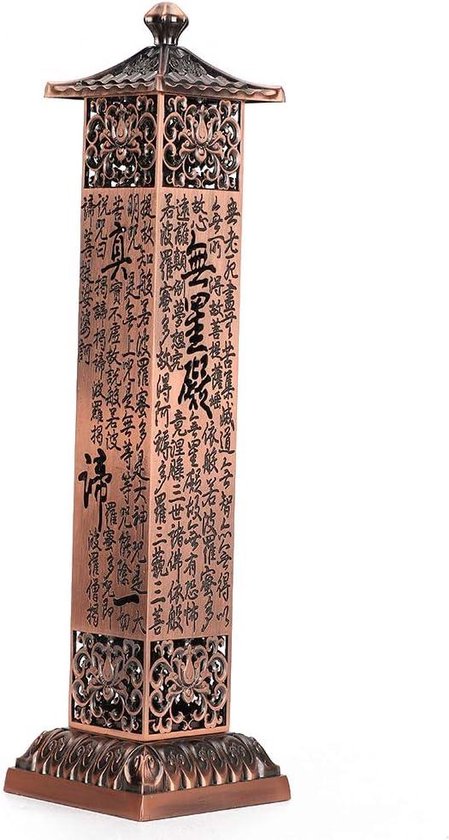 無老死盡無苦集滅道無智亦無得以
無所得故菩提薩埵依般若波羅蜜多
故心無罣礙無罣礙故無有恐怖
遠離顛倒夢想究竟涅槃三世諸佛依般
若波羅蜜多故得阿耨多羅三藐三菩
提故知般若波羅蜜多是大神咒是大
明咒是無上咒是無等等咒能除一切
苦真實不虛故說般若波羅蜜多咒即
說咒曰揭諦揭諦波羅揭諦波羅僧揭
諦菩提薩婆訶